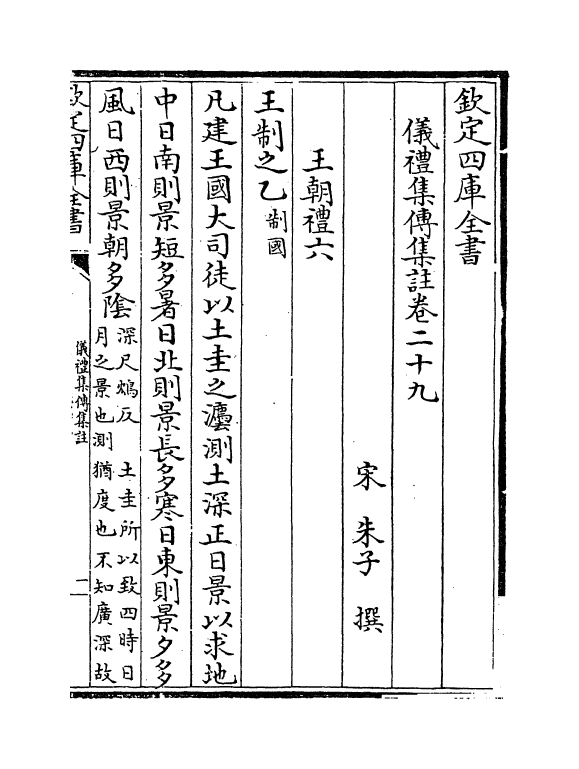 欽定四庫全書
儀禮集傳集註卷二十九
宋 朱子 撰
王朝禮六
王制之乙 制國
凡建王國大司徒以土圭之灋測土深正日景以求地
中日南則景短多暑日北則景長多寒日東則景夕多
風日西則景朝多陰 深尺鴆反 土圭所以致四時日
月之景也測 猶度也不知廣深故
欽定四庫全書
儀禮集傳集註